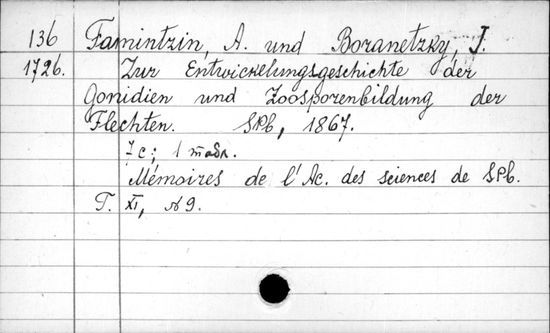 136 Famintzin, A. und Boranetzky, J.
1726. Zur Entwickelungsgeschichte der
Gonidien und Zoosporenbildung der
Flechten. SPb, 1867.
7 с; 1 табл.
Mémoires de l'Ac. des sciences de SPb.
T. XI, № 9.